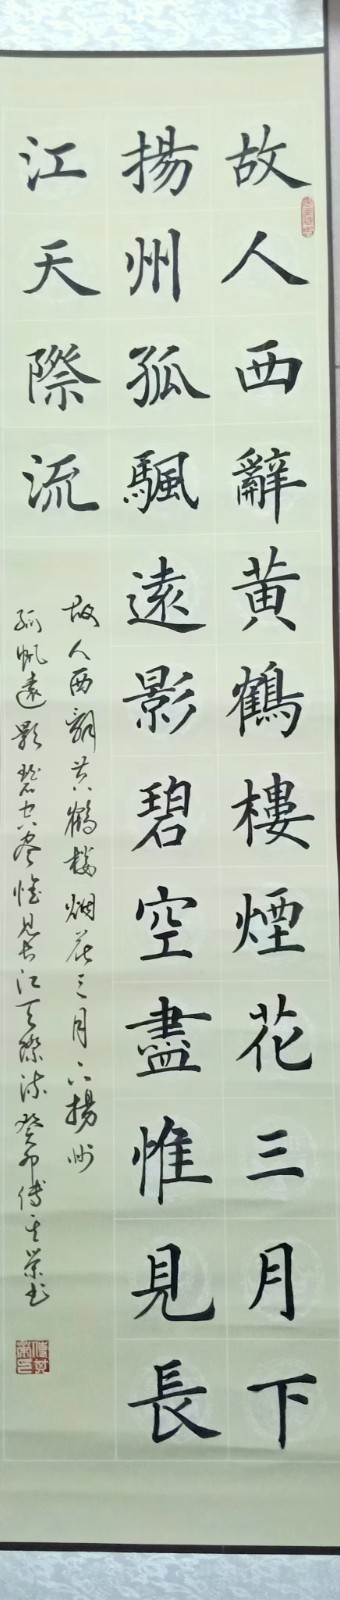 故人西辭黃鶴樓煙花三月下
揚州孤颿遠影碧空盡惟見長
江天際流
故人西辭黃鶴樓烟花三月下揚州
孤帆遠影碧空盡惟見長江天際流癸卯傅其榮书